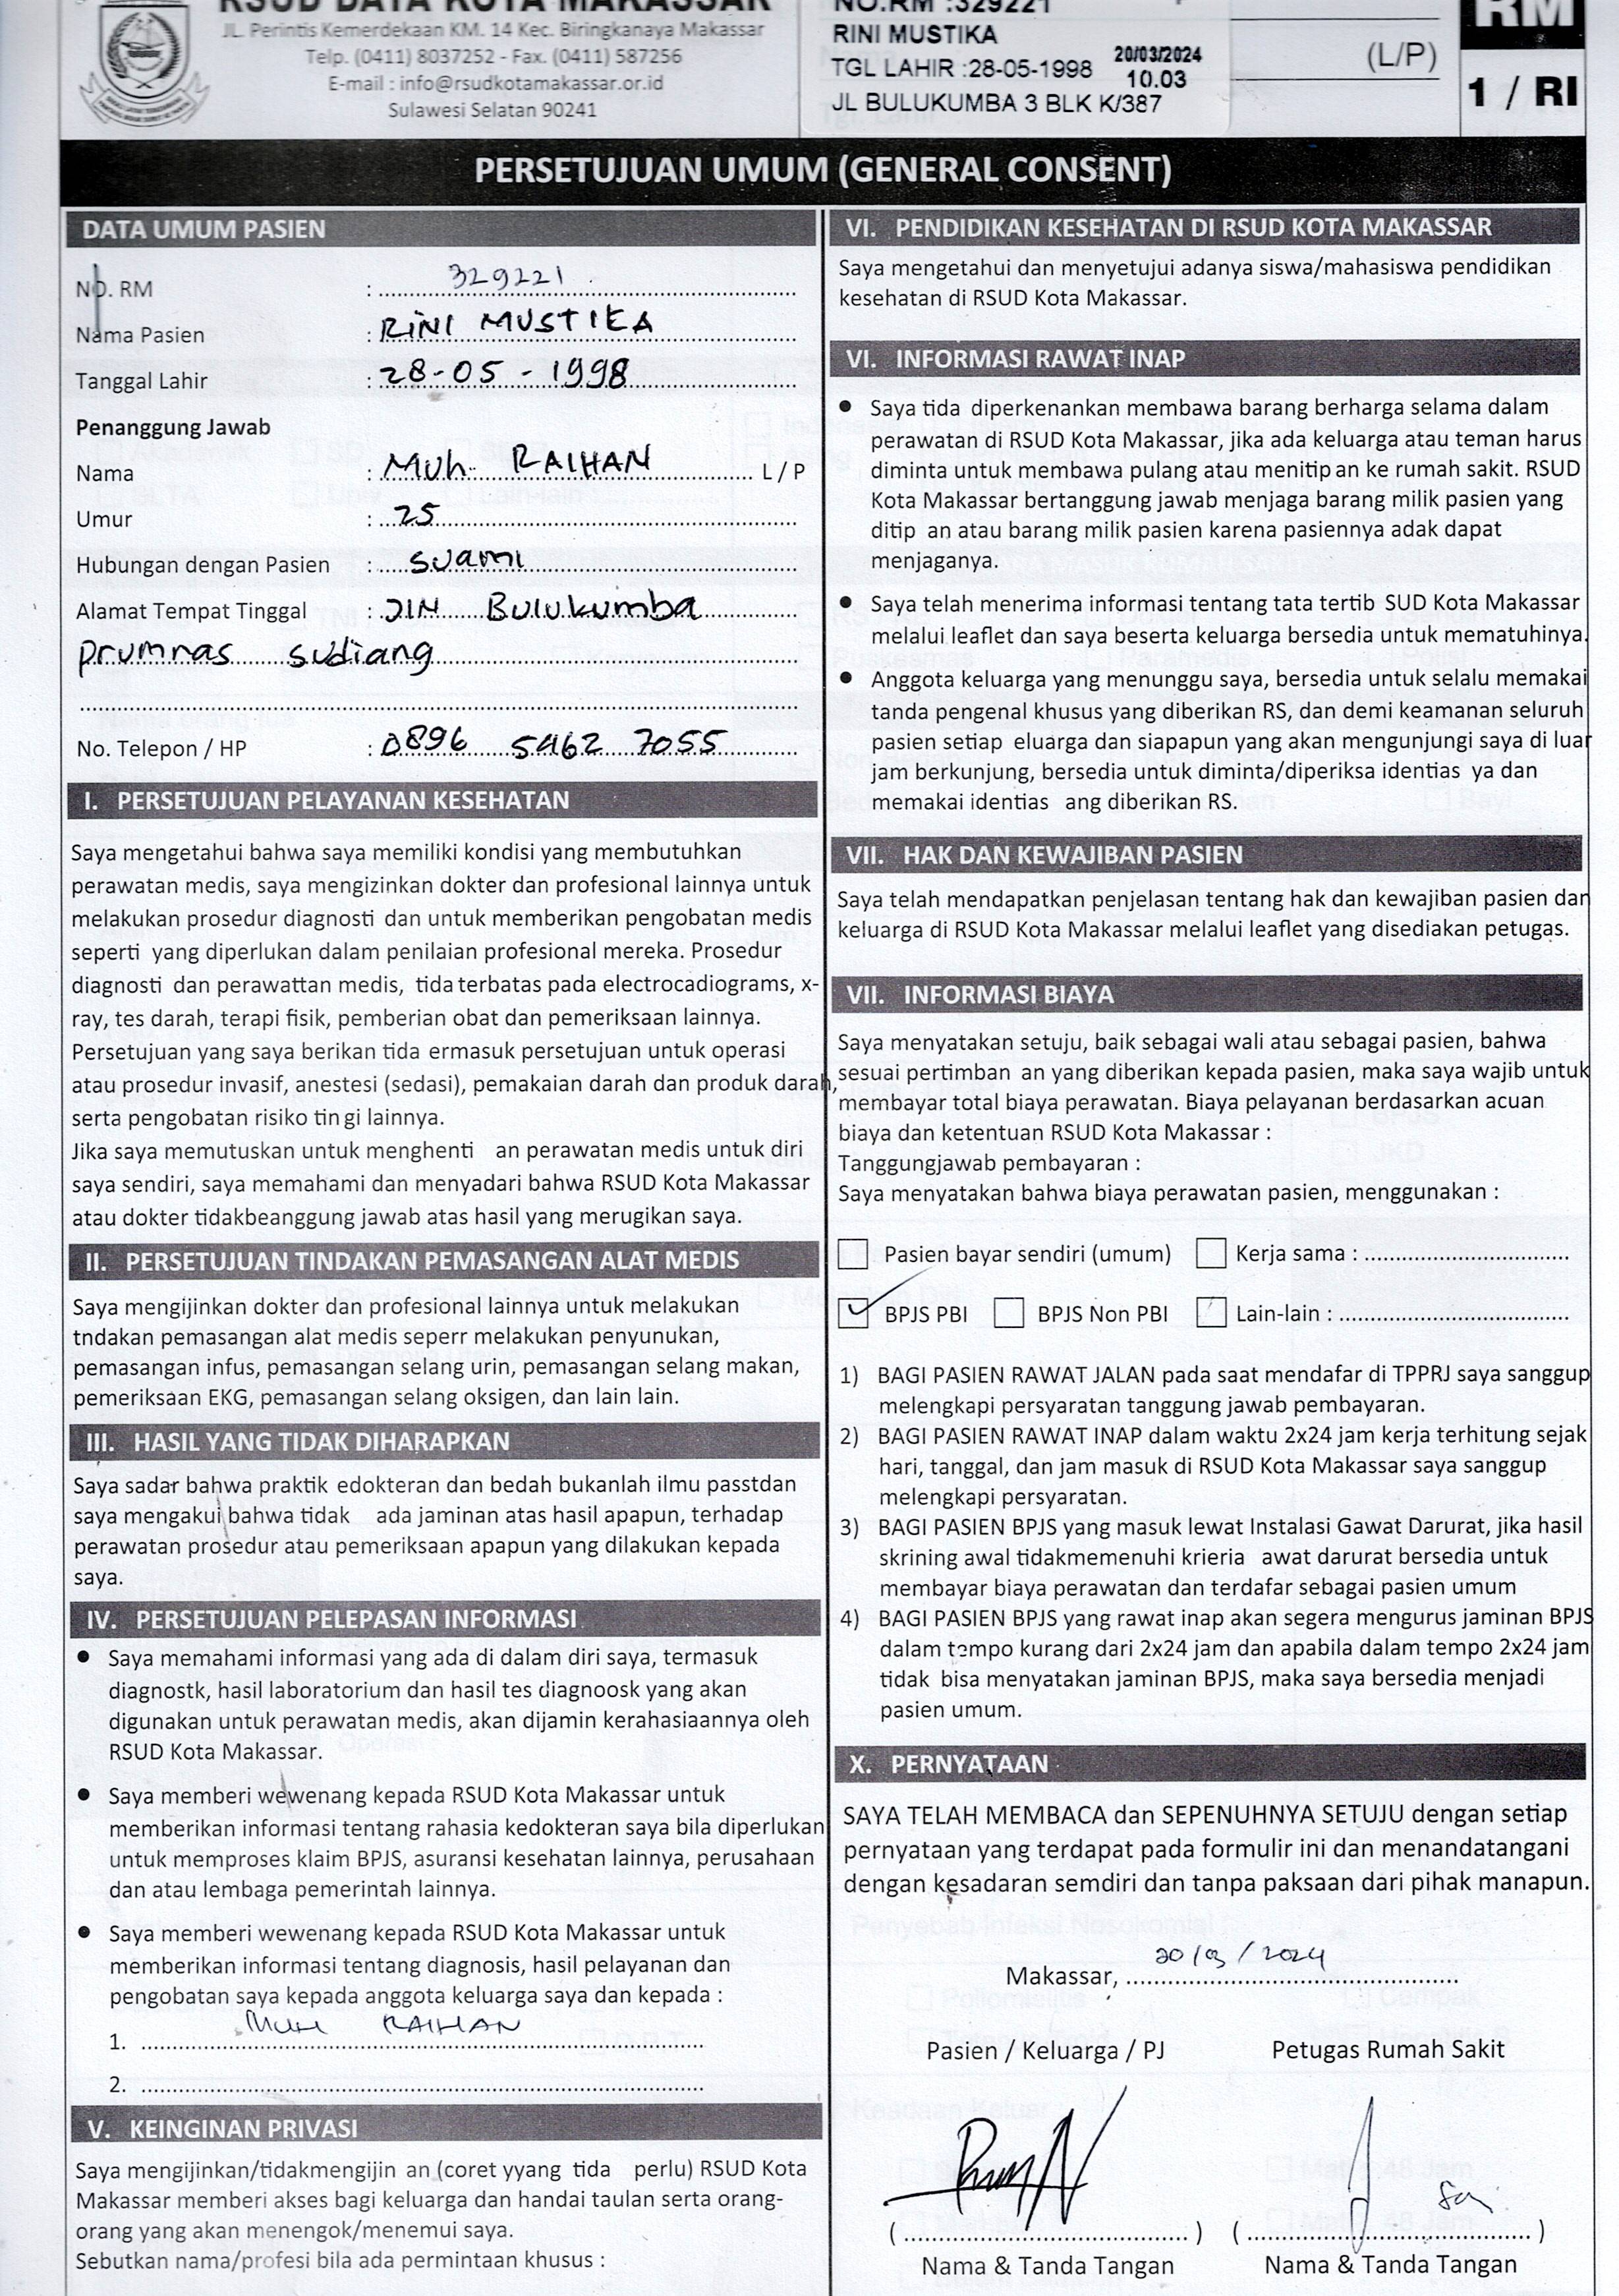 RSUD DAYA KOTA MAKASSAR
JL. Perintis Kemerdekaan KM. 14 Kec. Biringkanaya Makassar
Telp. (0411) 8037252 - Fax. (0411) 587256
E-mail : info@rsudkotamakassar.or.id
Sulawesi Selatan 90241
NO.RM :329221
RINI MUSTIKA
TGL LAHIR :28-05-1998 20/03/2024
10.03
JL BULUKUMBA 3 BLK K/387
(L/P)
RM
1 / RI
PERSETUJUAN UMUM (GENERAL CONSENT)
DATA UMUM PASIEN
NO. RM : 329221
Nama Pasien : RINI MUSTIKA
Tanggal Lahir : 28-05-1998
Penanggung Jawab
Nama : Muh. RAIHAN L / P
Umur : 25
Hubungan dengan Pasien : suami
Alamat Tempat Tinggal : JlN Bulukumba
prumnas sudiang
No. Telepon / HP : 0896 5462 7055
I. PERSETUJUAN PELAYANAN KESEHATAN
Saya mengetahui bahwa saya memiliki kondisi yang membutuhkan
perawatan medis, saya mengizinkan dokter dan profesional lainnya untuk
melakukan prosedur diagnosti dan untuk memberikan pengobatan medis
seperti yang diperlukan dalam penilaian profesional mereka. Prosedur
diagnosti dan perawattan medis, tida terbatas pada electrocadiograms, x-
ray, tes darah, terapi fisik, pemberian obat dan pemeriksaan lainnya.
Persetujuan yang saya berikan tida ermasuk persetujuan untuk operasi
atau prosedur invasif, anestesi (sedasi), pemakaian darah dan produk darah,
serta pengobatan risiko tin gi lainnya.
Jika saya memutuskan untuk menghenti an perawatan medis untuk diri
saya sendiri, saya memahami dan menyadari bahwa RSUD Kota Makassar
atau dokter tidakbeanggung jawab atas hasil yang merugikan saya.
II. PERSETUJUAN TINDAKAN PEMASANGAN ALAT MEDIS
Saya mengijinkan dokter dan profesional lainnya untuk melakukan
tndakan pemasangan alat medis seperr melakukan penyunukan,
pemasangan infus, pemasangan selang urin, pemasangan selang makan,
pemeriksaan EKG, pemasangan selang oksigen, dan lain lain.
III. HASIL YANG TIDAK DIHARAPKAN
Saya sadar bahwa praktik edokteran dan bedah bukanlah ilmu passtdan
saya mengakui bahwa tidak ada jaminan atas hasil apapun, terhadap
perawatan prosedur atau pemeriksaan apapun yang dilakukan kepada
saya.
IV. PERSETUJUAN PELEPASAN INFORMASI
• Saya memahami informasi yang ada di dalam diri saya, termasuk
diagnostk, hasil laboratorium dan hasil tes diagnoosk yang akan
digunakan untuk perawatan medis, akan dijamin kerahasiaannya oleh
RSUD Kota Makassar.
• Saya memberi wewenang kepada RSUD Kota Makassar untuk
memberikan informasi tentang rahasia kedokteran saya bila diperlukan
untuk memproses klaim BPJS, asuransi kesehatan lainnya, perusahaan
dan atau lembaga pemerintah lainnya.
• Saya memberi wewenang kepada RSUD Kota Makassar untuk
memberikan informasi tentang diagnosis, hasil pelayanan dan
pengobatan saya kepada anggota keluarga saya dan kepada :
1. MUH RAIHAN
2.
V. KEINGINAN PRIVASI
Saya mengijinkan/tidakmengijin an (coret yyang tida perlu) RSUD Kota
Makassar memberi akses bagi keluarga dan handai taulan serta orang-
orang yang akan menengok/menemui saya.
Sebutkan nama/profesi bila ada permintaan khusus :
VI. PENDIDIKAN KESEHATAN DI RSUD KOTA MAKASSAR
Saya mengetahui dan menyetujui adanya siswa/mahasiswa pendidikan
kesehatan di RSUD Kota Makassar.
VI. INFORMASI RAWAT INAP
• Saya tida diperkenankan membawa barang berharga selama dalam
perawatan di RSUD Kota Makassar, jika ada keluarga atau teman harus
diminta untuk membawa pulang atau menitip an ke rumah sakit. RSUD
Kota Makassar bertanggung jawab menjaga barang milik pasien yang
ditip an atau barang milik pasien karena pasiennya adak dapat
menjaganya.
• Saya telah menerima informasi tentang tata tertib SUD Kota Makassar
melalui leaflet dan saya beserta keluarga bersedia untuk mematuhinya.
• Anggota keluarga yang menunggu saya, bersedia untuk selalu memakai
tanda pengenal khusus yang diberikan RS, dan demi keamanan seluruh
pasien setiap eluarga dan siapapun yang akan mengunjungi saya di luar
jam berkunjung, bersedia untuk diminta/diperiksa identias ya dan
memakai identias ang diberikan RS.
VII. HAK DAN KEWAJIBAN PASIEN
Saya telah mendapatkan penjelasan tentang hak dan kewajiban pasien dan
keluarga di RSUD Kota Makassar melalui leaflet yang disediakan petugas.
VII. INFORMASI BIAYA
Saya menyatakan setuju, baik sebagai wali atau sebagai pasien, bahwa
sesuai pertimban an yang diberikan kepada pasien, maka saya wajib untuk
membayar total biaya perawatan. Biaya pelayanan berdasarkan acuan
biaya dan ketentuan RSUD Kota Makassar :
Tanggungjawab pembayaran :
Saya menyatakan bahwa biaya perawatan pasien, menggunakan :
Pasien bayar sendiri (umum) Kerja sama :
✓ BPJS PBI BPJS Non PBI Lain-lain :
1) BAGI PASIEN RAWAT JALAN pada saat mendafar di TPPRJ saya sanggup
melengkapi persyaratan tanggung jawab pembayaran.
2) BAGI PASIEN RAWAT INAP dalam waktu 2x24 jam kerja terhitung sejak
hari, tanggal, dan jam masuk di RSUD Kota Makassar saya sanggup
melengkapi persyaratan.
3) BAGI PASIEN BPJS yang masuk lewat Instalasi Gawat Darurat, jika hasil
skrining awal tidakmemenuhi krieria awat darurat bersedia untuk
membayar biaya perawatan dan terdafar sebagai pasien umum
4) BAGI PASIEN BPJS yang rawat inap akan segera mengurus jaminan BPJS
dalam tempo kurang dari 2x24 jam dan apabila dalam tempo 2x24 jam
tidak bisa menyatakan jaminan BPJS, maka saya bersedia menjadi
pasien umum.
X. PERNYATAAN
SAYA TELAH MEMBACA dan SEPENUHNYA SETUJU dengan setiap
pernyataan yang terdapat pada formulir ini dan menandatangani
dengan kesadaran semdiri dan tanpa paksaan dari pihak manapun.
Makassar, 20/03/2024
Pasien / Keluarga / PJ Petugas Rumah Sakit
( ) ( )
Nama & Tanda Tangan Nama & Tanda Tangan